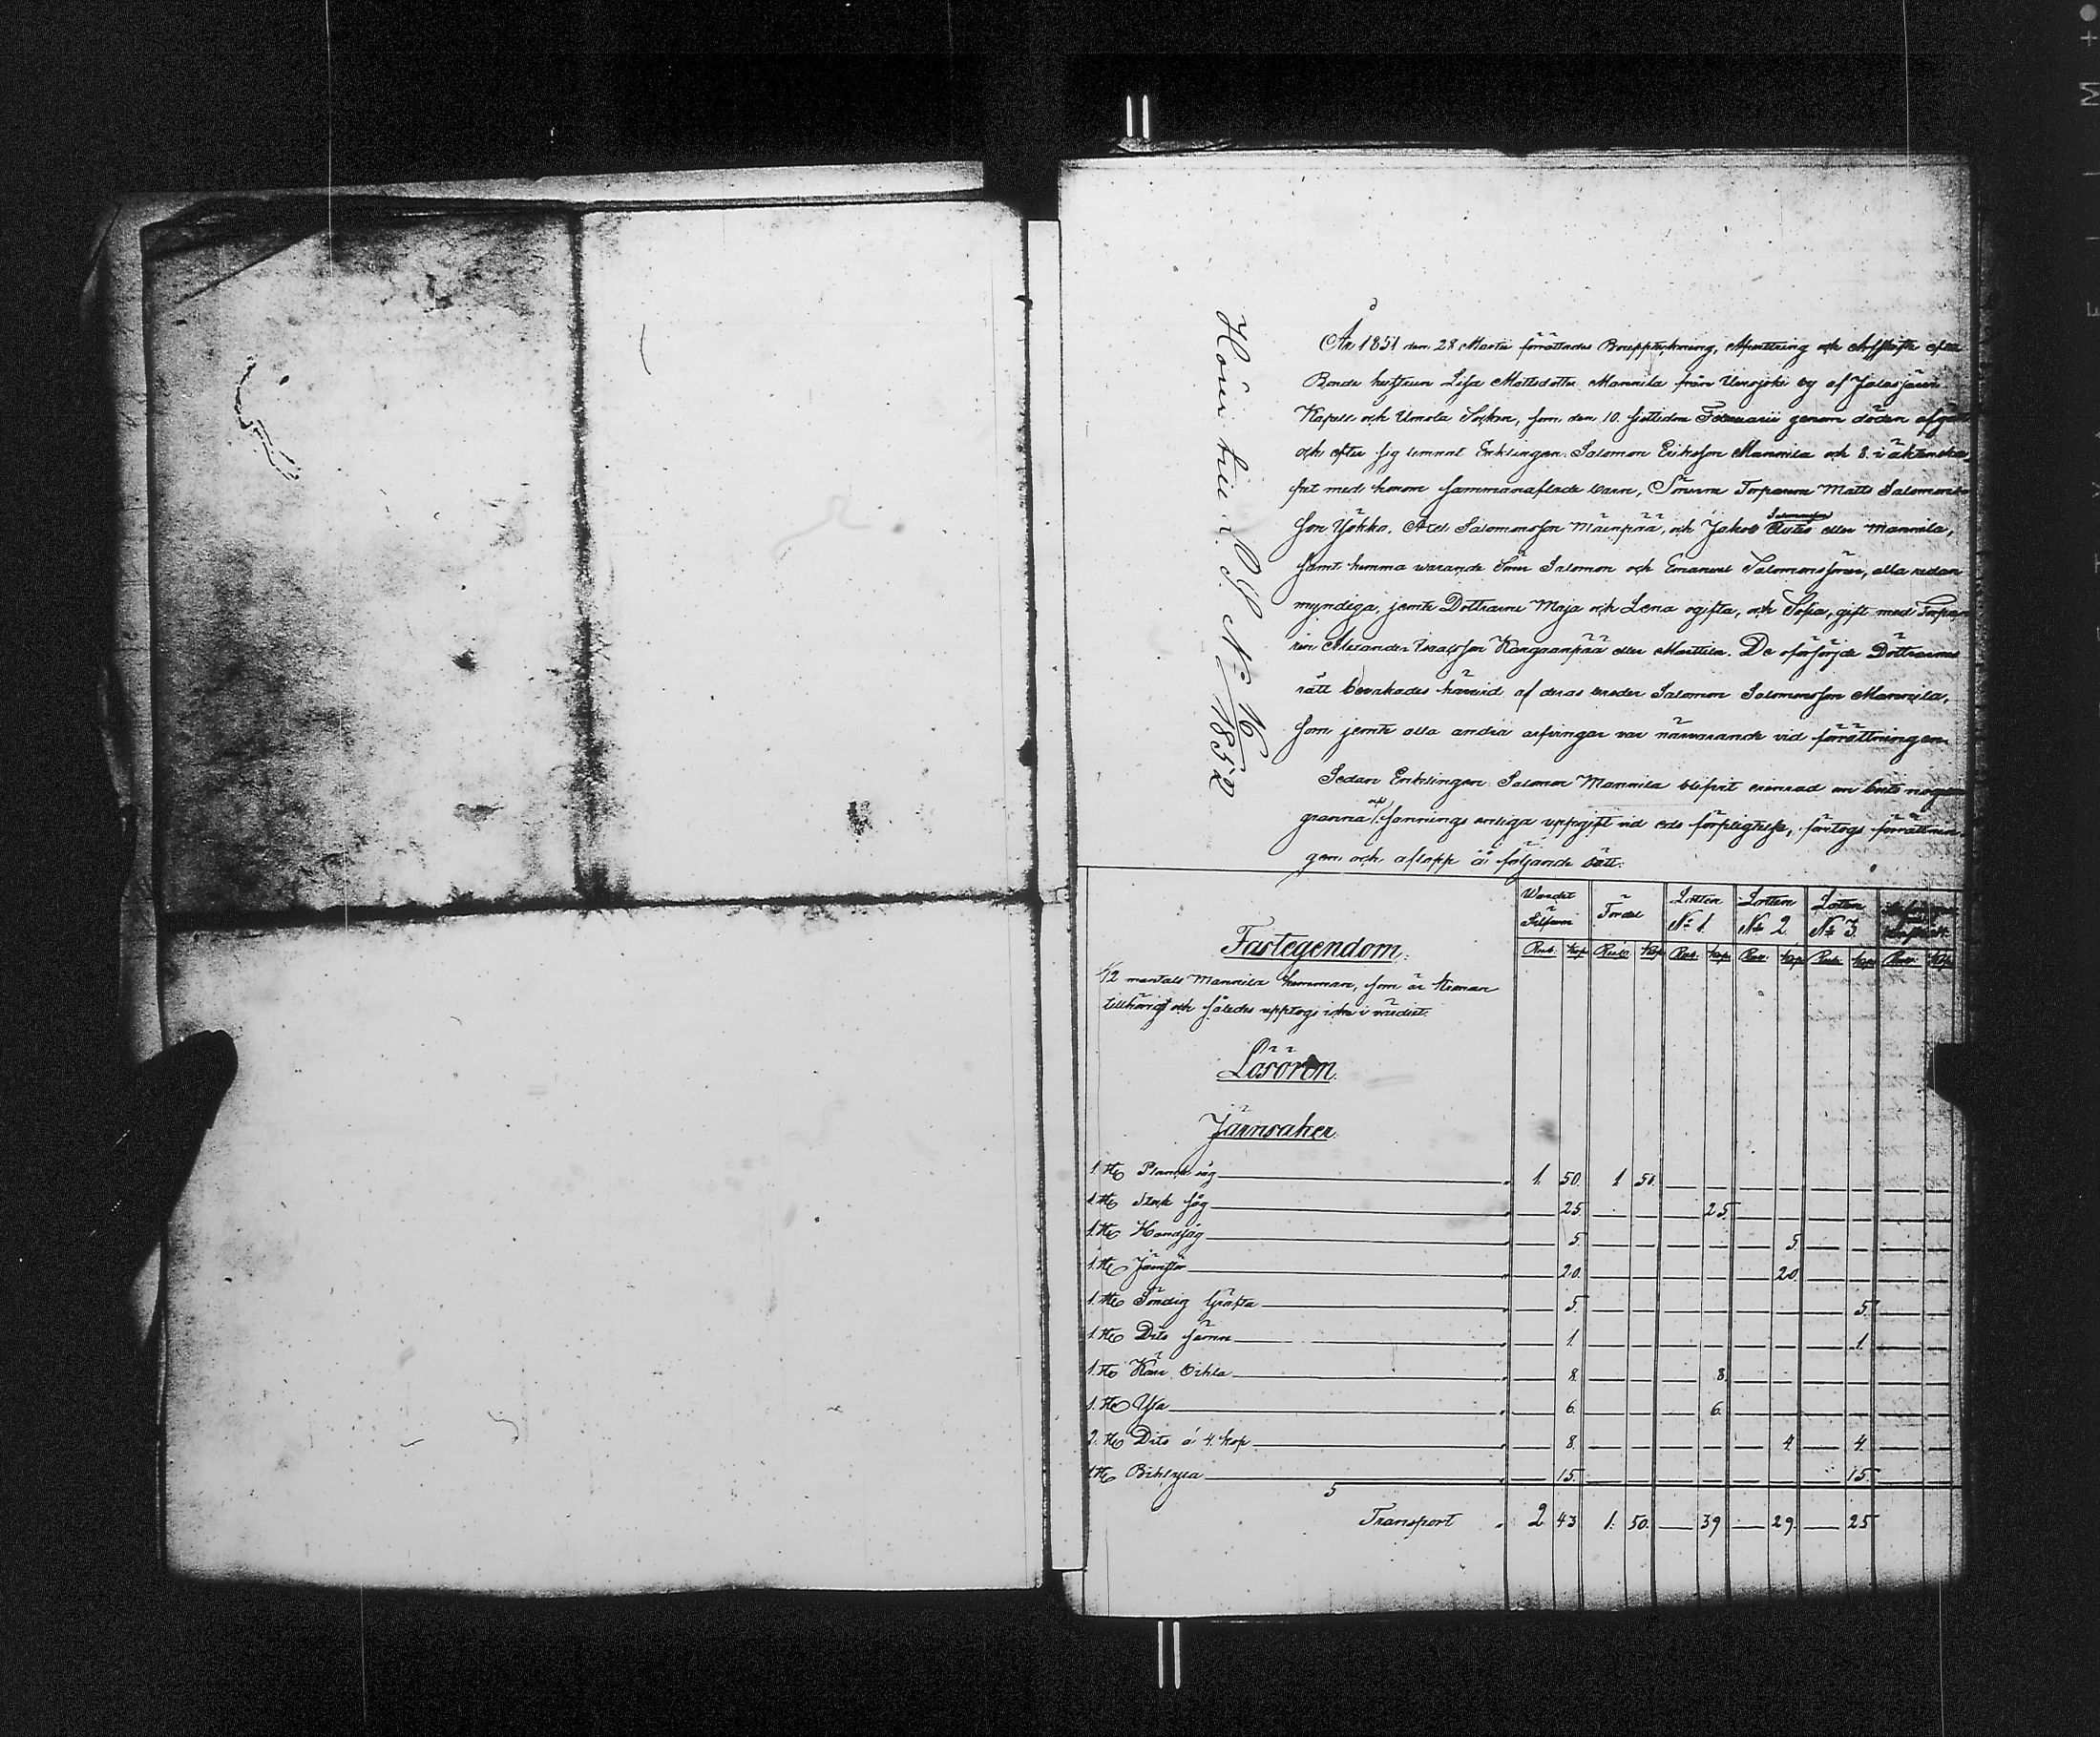 Hörer till P. S. No 16/1852
År 1851 den 28 Martii förrättades Bouppteckning, Afvittring och Arfskifte efter
Bonde hustrun Lisa Mattsdotter Mannila från Hirvijoki by af Jalasjärvi
Kapell och Ilmola Socken, som den 10. sistledne Februarii genom döden afgått
och efter sig lemnat Enklingen Salomon Eriksson Mannila och 8. i äktenska-
pet med honom sammanaflade barn, Sönerne Torparene Matts Salomons-
son Yökkö, Axel Salomonsson Mäenpää, och Jakob Salomonsson eller Mannila,
samt hemma warande Söner Salomon och Emanuel Salomonssöner, alla redan
myndiga, jemte Döttrarne Maja och Lena ogifta, och Sofia, gift med Torpa-
ren Alexander Isaksson Kangaanpää eller Marttila. De oförsörjde Döttrarnes
rätt bevakades härvid af deras broder Salomon Salomonsson Mannila,
som jemte alla andra arfvingar var närvarande vid förrättningen.
Sedan Enklingen Salomon Mannila blifvit erinrad om boets noga
granna och sannings enliga uppgift vid eds förpligtelse, företogs förrättnin-
gen och aflopp å följande sätt:
Wärdet i Silfver Fördel Lotten No 1. Lotten No 2 Lotten No 3.
Rub. Kop Rub. Kop Rub. Kop. Rub. Kop Rub. Kop Rub. Kop
Fastegendom:
1/12 mantals Mannila hemman, som är Kronan
tillhörigt och således upptogs icke i värdet.
Lösören
Järnsaker
1. st Plank såg 1. 50. 1 50.
1. st Stock såg 25. 25.
1. st Handsåg 5. 5.
1. st Järnstör 20. 20.
1. st Söndrig Gräfta 5. 5.
1. st Dito 1. 1.
1. st Kärr bihla 8. 8.
1. st Yxa 6. 6.
2. st Dito á 4. kop 8. 4. 4.
1 st Bihlyxa 15. 15.
5
Transport 2 43 1. 50. 39 29. 25